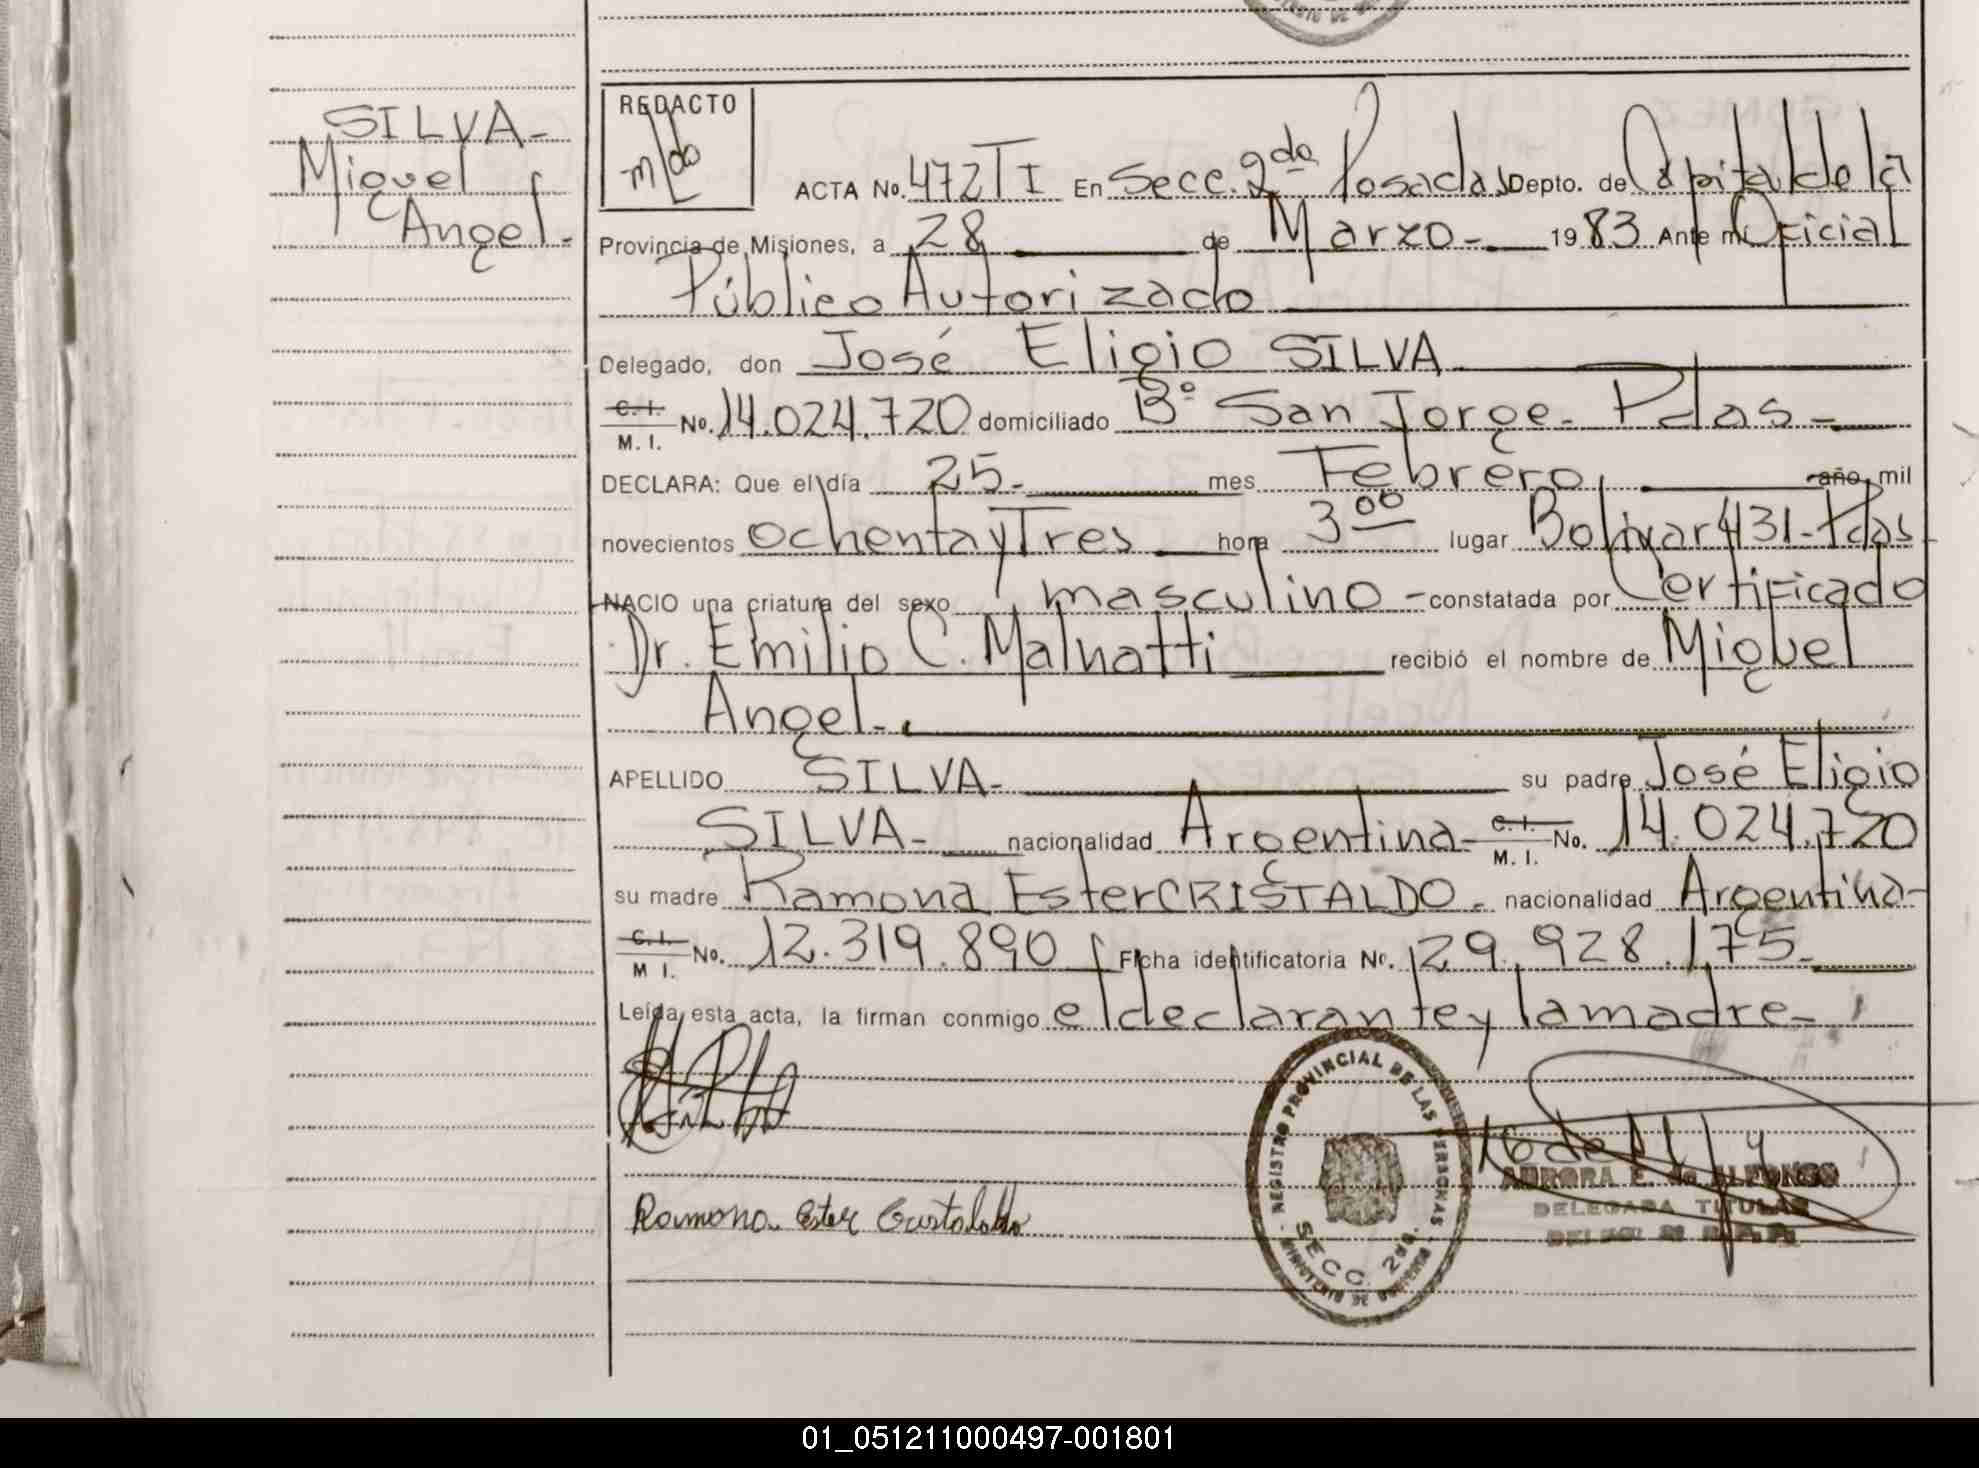 SILVA-
Miguel
Angel-
REDACTO
ACTA No. 472 T I En Secc. 2da Posadas Depto. de Capital de la
Provincia de Misiones, a 28 de Marzo- 1983 Ante mi Oficial
Público Autorizado
Delegado, don José Eligio SILVA
C. I.
M. I. No. 14.024.720 domiciliado B° San Jorge- Pdas-
DECLARA: Que el día 25- mes Febrero año mil
novecientos ochenta y Tres hora 3 00 lugar Bolivar 431-Pdas
NACIO una criatura del sexo masculino - constatada por Certificado
Dr. Emilio C. Malnatti recibió el nombre de Miguel
Angel-
APELLIDO SILVA- su padre José Eligio
SILVA- nacionalidad Argentina- C. I. M. I. No. 14.024.720
su madre Ramona Ester CRISTALDO- nacionalidad Argentina-
C. I.
M I. No. 12.319.890 Ficha identificatoria No. 29.928.175-
Leída esta acta, la firman conmigo el declarante y la madre-
REGISTRO PROVINCIAL DE LAS PERSONAS
SECC. 2da.
MINISTERIO DE GOBIERNO
AURORA E. de ALFONSO
DELEGADA TITULAR
Ramona Ester Cristaldo
01_051211000497-001801